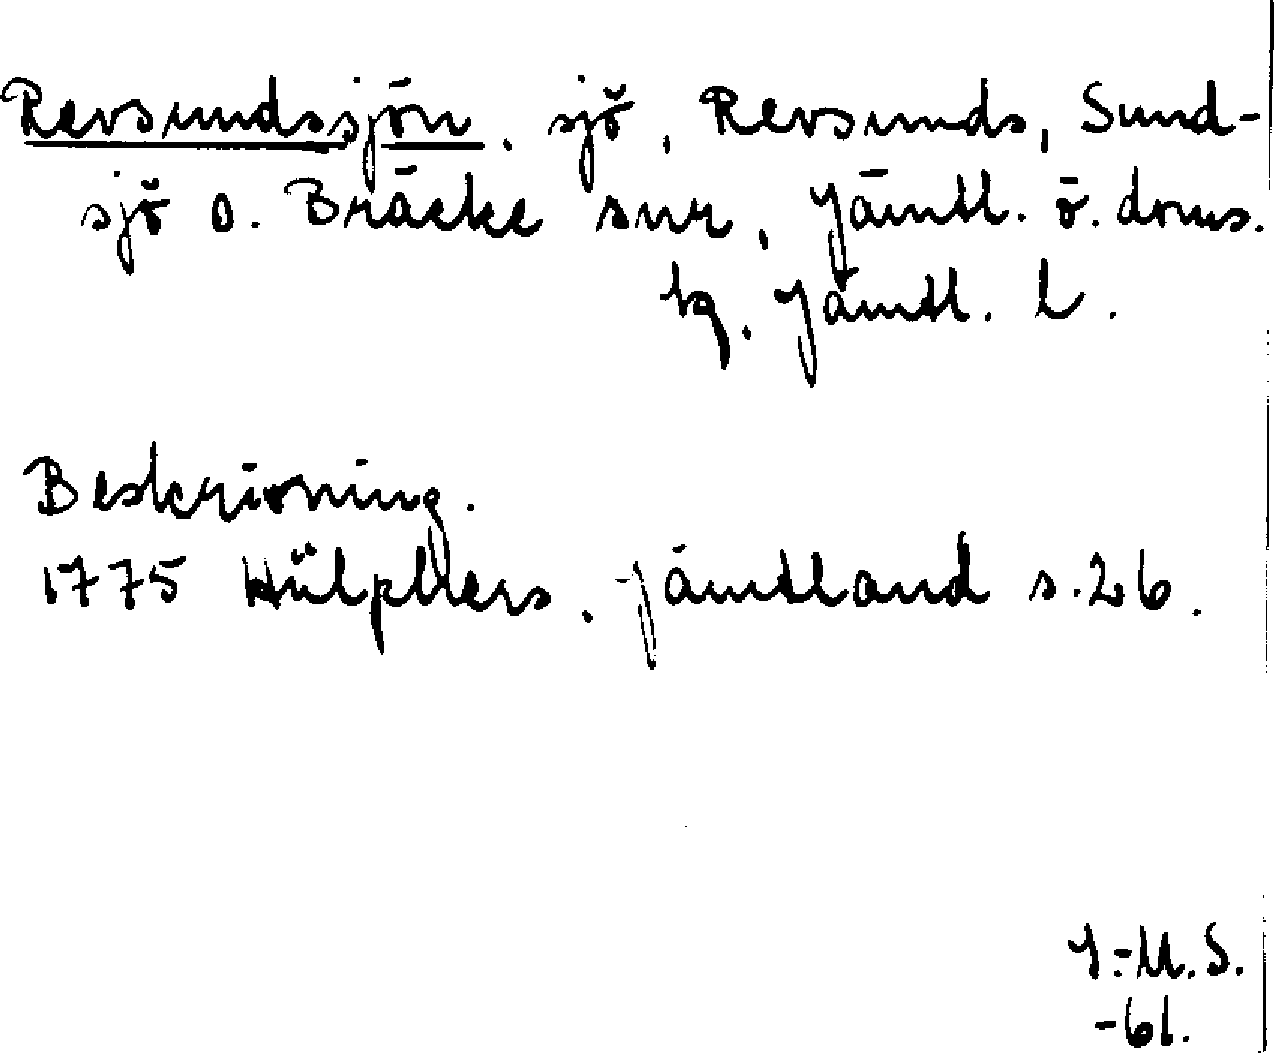 Revsundssjön, sjö, Revsunds, Sund-
sjö o. Bräcke snr, Jämtl. ö. doms.
hg, Jämtl. L.
Beskrivning.
1775 Hülphers, Jämtland s. 26.
I.-M. S.
-61.